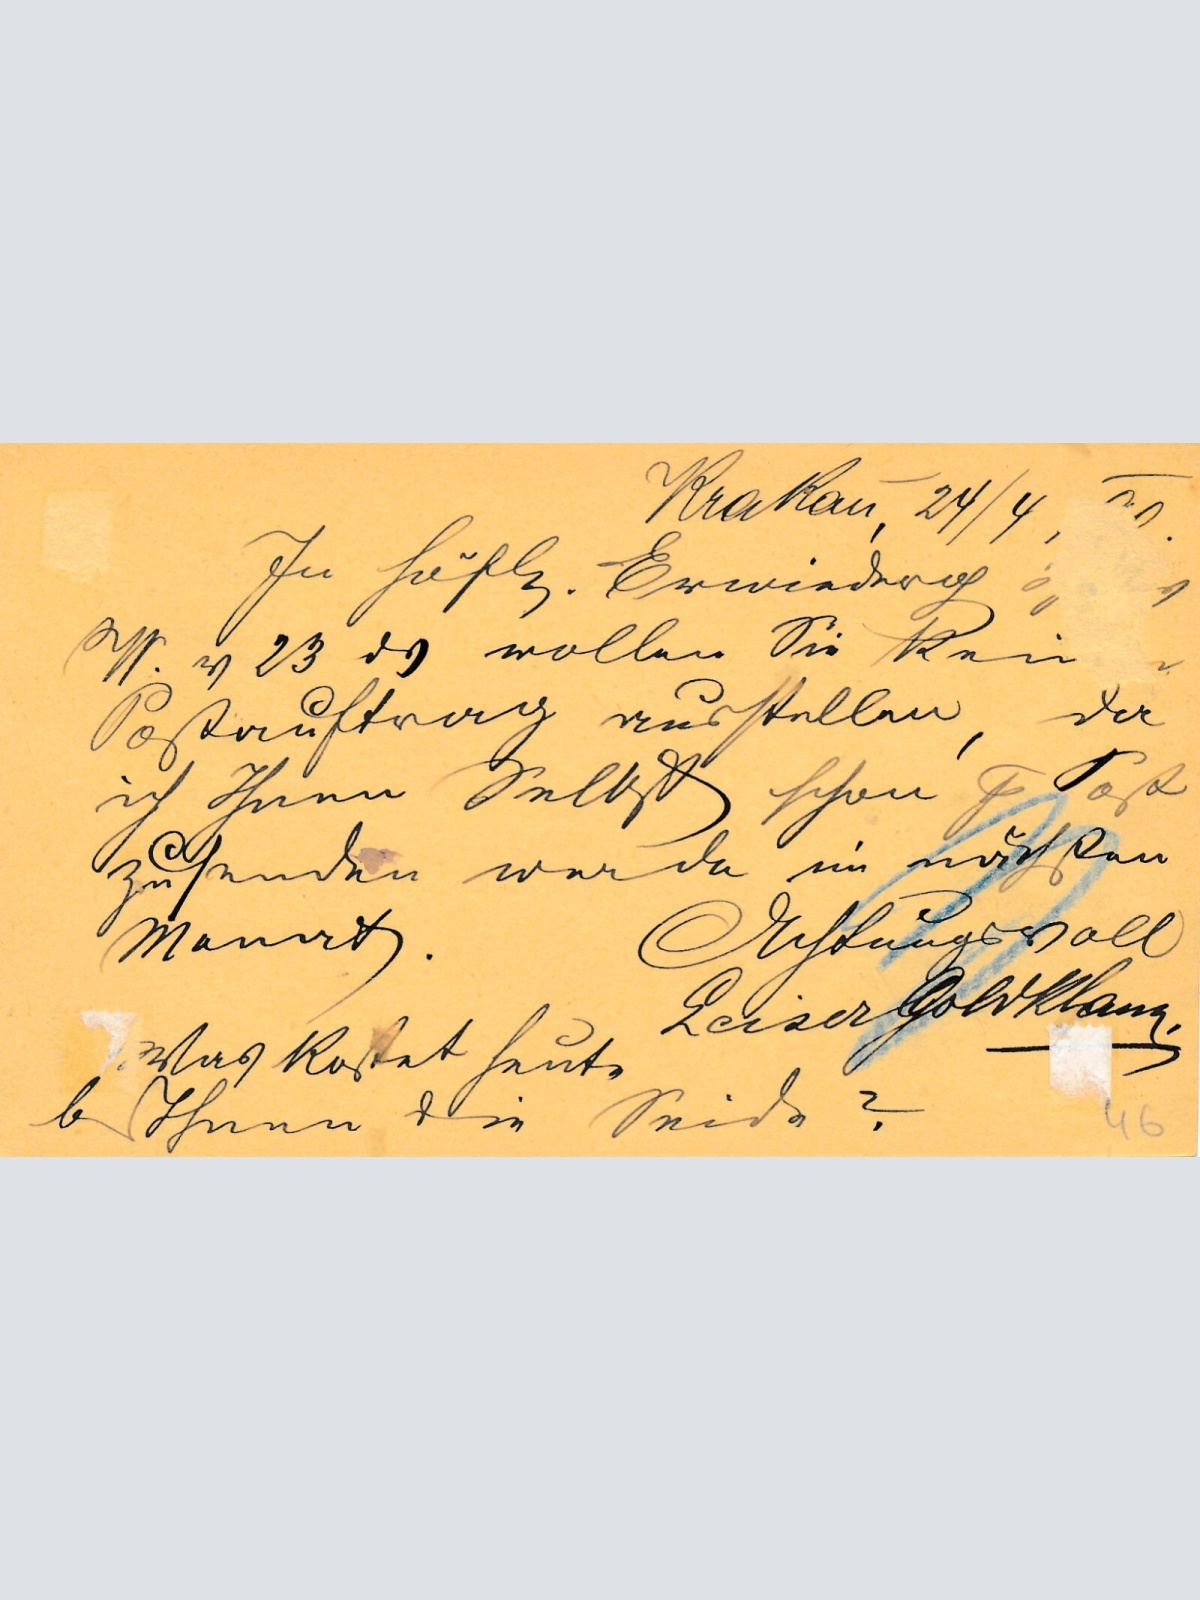 Krakau, 24/4,
In höflg. Erwiederg
W. v 23 ds wollen Sie kein
Postauftrag ausstellen, da
ich Ihnen Selbst schon P Post
zusenden werde im nächsten
Monat.
Achtungsvoll
Leiser Goldklang.
Was kostet heute
b Ihnen die Seide?
46